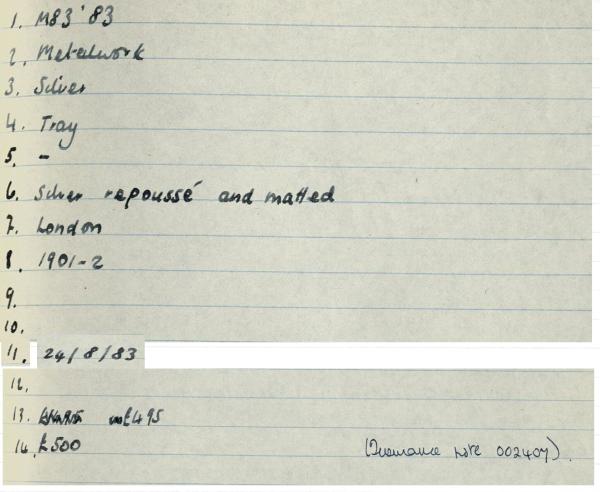 1. M83 '83
2. Metalwork
3. Silver
4. Tray
5. -
6. Silver repoussé and matted
7. London
8. 1901-2
9.
10.
11. 24/8/83
12.
13. £495
14. £500 (Insurance note 002407).